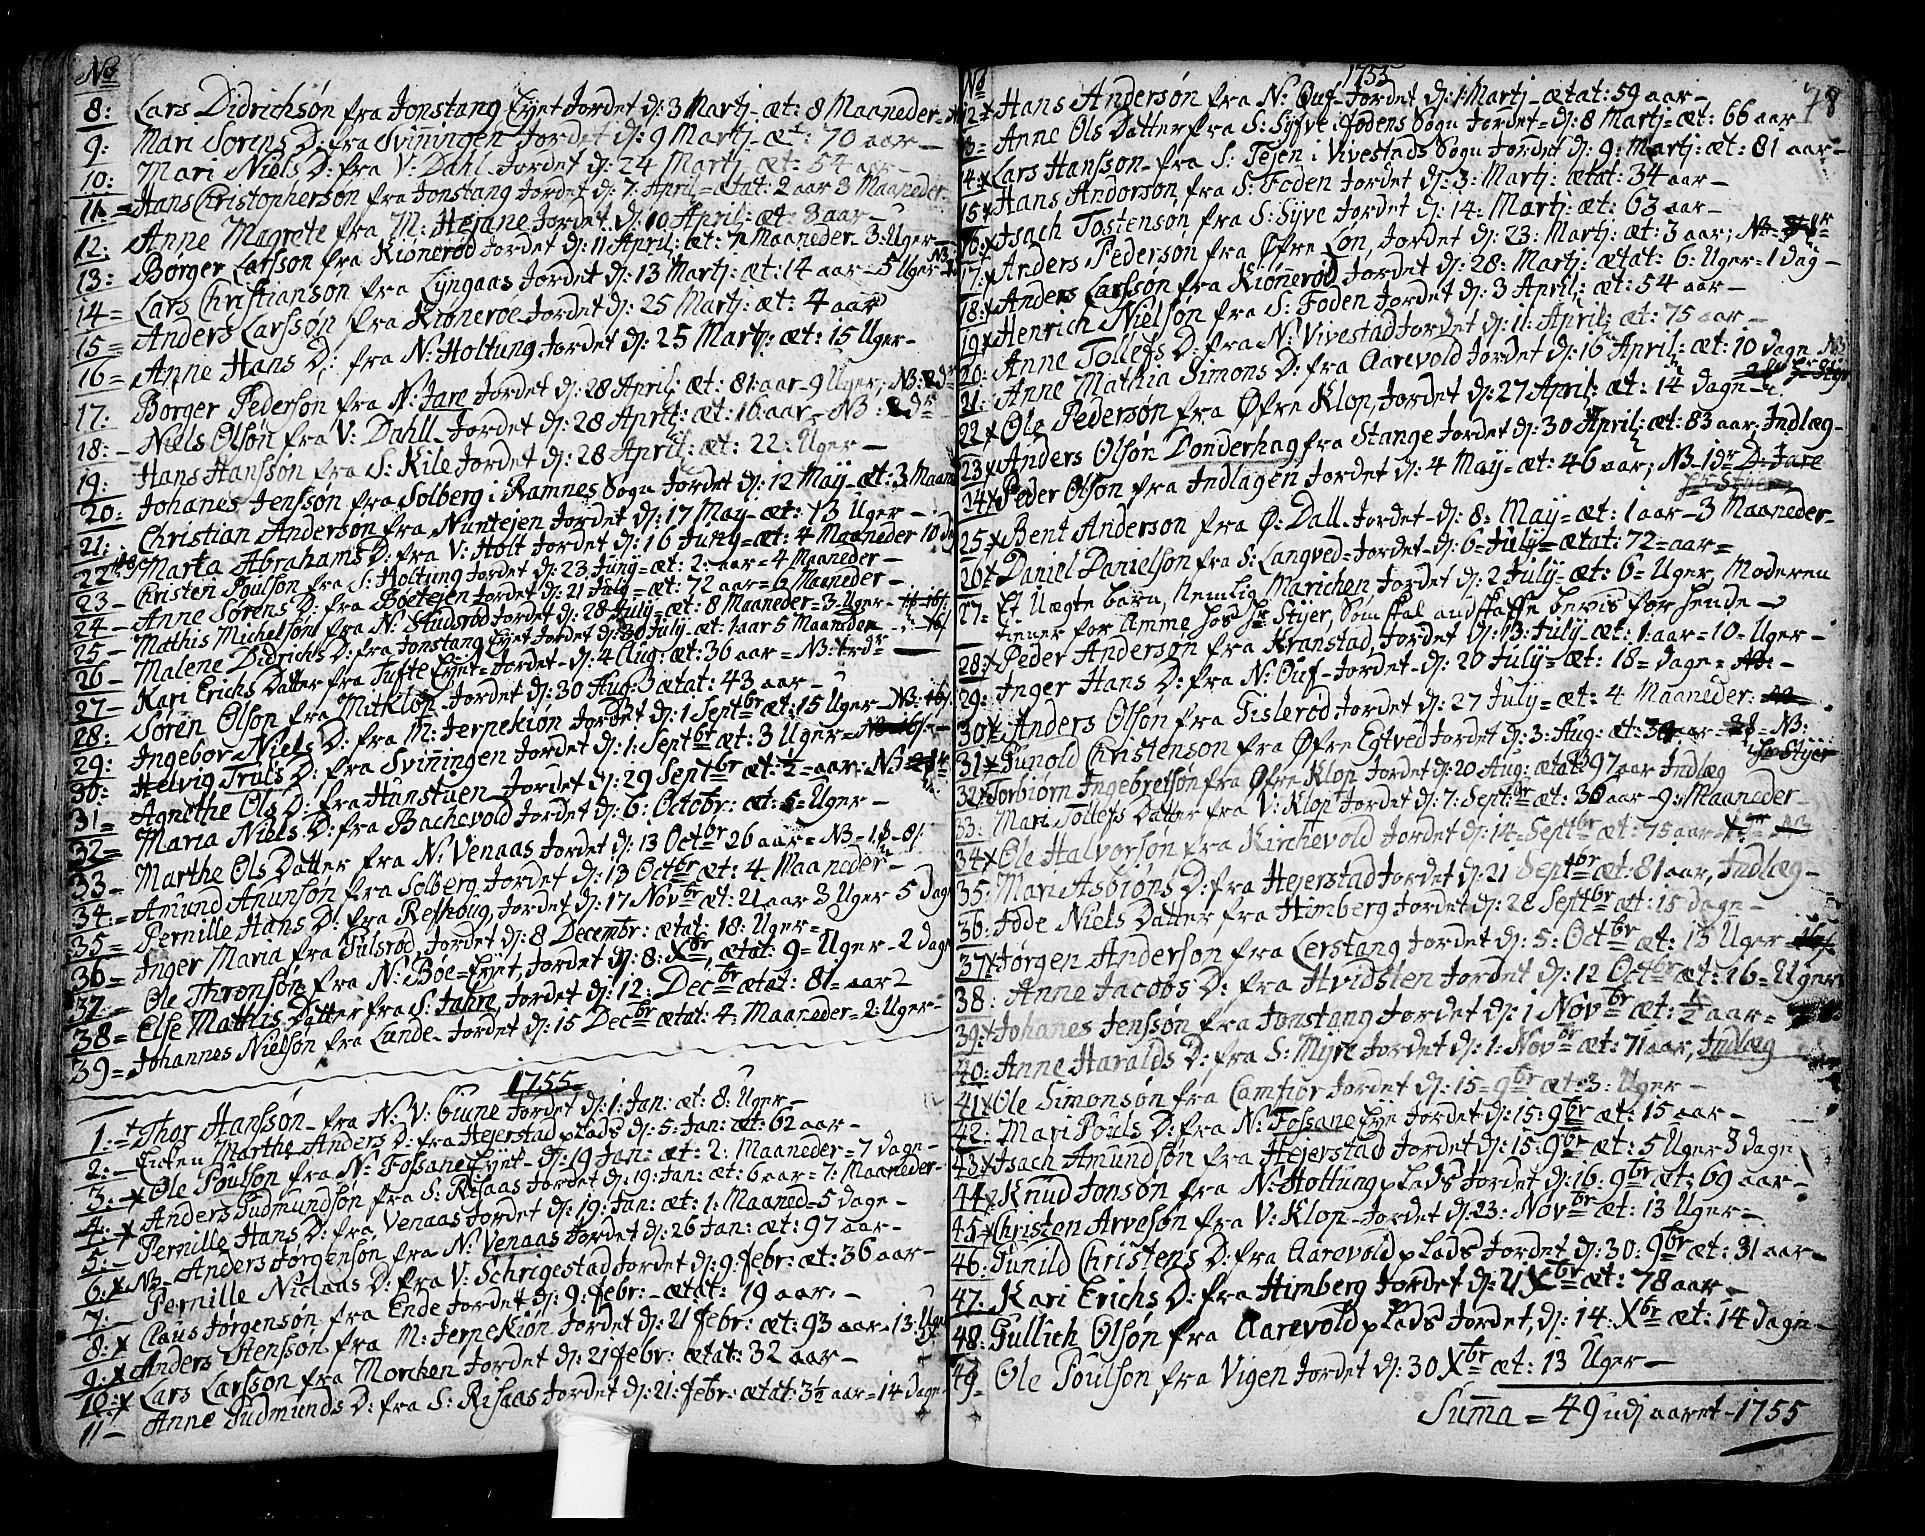 No
8: Lars Didrichsøn fra Jonstang Eyet Jordet dj: 3 Martj - æt: 8 Maaneder -
9: Mari Sørens D: fra Sviningen Jordet dj: 9 Martj - æt: 70 aar -
10: Mari Niels D: fra V: Dahl - Jordet dj: 24 Martj - æt: 54 aar -
11: = Hans Christophersøn fra Jonstang Jordet dj: 7: April = ætat: 2 aar 3 Maaneder
12: Anne Magrete fra M: Hejane Jordet dj: 10 April: æt: 8 aar -
13: Børger Larssøn fra Kiønerød Jordet dj: 11 April: æt: 7 Maaneder - 3: Uger -
14 = Lars Christiansøn fra Lyngaas Jordet dj: 13 Martj: æt: 14 aar - 5 Uger -
15 = Anders Larssøn fra Kiønerøe Jordet dj: 25 Martj: æt: 4 aar
16 = Anne Hans D: fra N: Holtung Jordet dj: 25 Martj: æt: 15 Uger -
17: Børger Pedersøn fra N: Jare Jordet dj: 28 April: æt: 81: aar - 9 Uger; N3:
18: - Niels Olsøn fra V: Dahll - Jordet dj: 28 April: æt: 16: aar - N3:
19: Hans Hanssøn fra S: Kile Jordet dj: 28 April: æt: 22: Uger -
20: Johanes Jenssøn fra Solberg i Ramnes Sogn Jordet dj: 12 May - æt: 3 Maan
21: Christian Andersøn fra Nuntejen Jordet dj: 17 May - æt: 13 Uger -
22 Marta Abrahams D: fra V: Holt Jordet dj: 16 Juny = æt: 4 Maaneder 10 d
23 - Christen Poulsøn fra S: Holtung Jordet dj: 23 Juny = æt: 2: aar = 4 Maaneder -
24 - Anne Sørens D: fra Bøetejen Jordet dj: 21 July = æt: 72 aar = 6 Maaneder -
25 - Mathis Michelsøn fra N: Studsrød Jordet dj: 28 July = æt: 8 Maaneder = 3 - Uger -
26 - Malene Didrichs D: fra Jonstang Eyet Jordet dj: 30 July - æt: 1 aar 5 Maaneder
27 - Kari Erichs Datter fra Tufte Eyet = Jordet - dj: 4 Aug: æt: 36 aar = N3:
28: Søren Olsøn fra Mitklop - Jordet dj: 30 Aug: ætat: 43 aar -
29: Ingebor Niels D: fra M: Jernekiøn Jordet dj: 1 Septbr æt: 15 Uger -
30: Helvig Truls D: fra Sviningen Jordet dj: 1: Septbr æt: 3 Uger =
31 = Agnethe Ols D: fra Hunstuen - Jordet dj: 29 Septbr æt: ½ = aar;
32 = Maria Niels D: fra Bachevold Jordet dj: 6: Octobr: æt: 5 = Uger -
33 - Marthe Ols Datter fra N: Venaas Jordet dj: 13 Octbr 26 aar = N3 -
34: = Amund Anunsøn fra Solberg Jordet dj: 13 Octbr æt: 4 Maaneder -
35 = Pernille Hans D: fra Refshoug, Jordet dj: 17 Novbr æt: 21 aar 3 Uger 5 Dag
36 - Inger Maria fra Fulsrød, Jordet dj: 8 Decembr: ætat: 18: Uger =
37 - Ole Thronsøn fra N: Bøe = Eyet, Jordet dj: 8: Xbr, ætat: 9 = Uger - 2 Dag
38 = Else Mathis Datter fra S: Jahre, Jordet dj: 12: Decbr ætat: 81 = aar -
39 = Johannes Nielsøn fra Lande - Jordet dj: 15 Decbr ætat: 4: Maaneder = 2: Uger =
1755 =
1: = Thor Hanssøn - fra N: V: Guine Jordet dj: 1: Jan: æt: 8: Uger -
2: - Encken Marthe Anders D: fra Hejerstad plads dj: 5: Jan: æt: 62 aar -
3: - Ole Poulsøn fra N: Fossane Eyet - dj: 19 Jan: æt: 2: Maaneder = 7 dage -
4: - Anders Gudmundsøn fra S: Risaas Jordet dj: 19: Jan: æt: 6 aar = 7: Maaneder -
5: - Pernille Hans D: fra Venaas Jordet dj: 19: Jan: æt: 1: Maaned = 5 dage -
6: x N3 - Anders Jørgensøn fra N: Venaas Jordet dj: 26 Jan: æt: 97 aar -
7: Pernille Niclaas D: fra V: Schrigestad Jordet dj: 9: Febr: æt: 36 aar -
8: x Claus Jørgensøn fra Ende Jordet dj: 9: Febr: - ætat: 19 aar: -
9: x Anders Stenssøn fra M: Jernekiøn Jordet dj: 21 Febr: æt: 93 aar = 13: Uge
10: x Lars Larssøn fra Morcken Jordet dj: 21 Febr: ætat: 32 aar -
11 - Anne Gudmunds D: fra S: Risaas Jordet dj: 21: Febr: ætat: 3½ aar = 14 Dage
No 1755 78
12 x Hans Andersøn fra N: Ouf - Jordet dj: 1 Martj - ætat: 59 aar -
13 = Anne Ols Datter fra S: Syfve i Fodens Sogn Jordet = dj: 8 Martj = æt: 66 aar
14: x Lars Hanssøn - fra S: Tejen i Vivestads Sogn Jordet dj: 9: Martj: æt: 81 aar -
15 x Hans Andorsøn fra S: Foden Jordet dj: 3: Martj: ætat: 34 aar -
16: x Isach Tostensøn fra S: Syve Jordet dj: 14: Martj: æt: 63 aar -
17: x Anders Pedersøn fra Øfre Løn, Jordet dj: 23: Martj: æt: 3 aar;
18: x Anders Carlsøn fra Kiønerød Jordet dj: 28: Martj: ætat: 6: Uger = 1 Dag -
19 x Henrich Nielsøn fra S: Foden Jordet dj: 3 April: æt: 54 aar -
20: Anne Tollefs D: fra N: Vivestad Jordet dj: 11: April: æt: 75 aar -
21: Anne Mathia Simons D: fra Aarevold Jordet dj: 16 April: æt: 10 dage N3
22 x Ole Pedersøn fra Øfre Klop, Jordet dj: 27 April: æt: 14 dage -
23 x Anders Olsøn Donderhag fra Stange Jordet dj: 30 April: æt: 83 aar: Indlæg -
24 x Peder Olsøn fra Indlagen Jordet dj: 4 May = æt: 46 aar; N3 - 1 dr D: Jare
25 x Bent Andersøn fra Ø: Dall - Jordet - dj: 8: May = æt: 1 aar - 3 Maaneder -
26 x Daniel Danielsøn fra S: Langved = Jordet - dj: 6 = July = ætat: 72 = aar =
27 = Et Uægte barn, Nemlig Marichen Jordet dj: 2 July = æt: 6 = Uger, Moderen
tiener for Amme hos Hr Styer, Som skal anskaffe bevis for hende -
28: x Peder Andersøn fra Kranstad, Jordet dj: 13: July - æt: 1: aar = 10 = Uger -
29: Inger Hans D: fra N: Ouf - Jordet - dj: 20 July = æt: 18 = dage =
30 x Anders Olsøn fra Fislerød Jordet dj: 27 July = æt: 4 Maaneder:
31 x Gunold Christensøn fra Øfre Egtved Jordet dj: 3: Aug: æt: N3: Hr Styer
32 x Torbiørn Ingebretsøn fra Øfre Klop Jordet dj: 20 Aug: ætat: 97 aar Indlæg
33: Mari Tollefs Datter fra V: Klop Jordet dj: 7: Sept:br æt: 30 aar - 9: Maaneder -
34 x Ole Halvorsøn fra Kirchevold Jordet dj: 14 = Septbr æt: 75 aar
35: Mari Asbiøns D: fra Hejerstad Jordet dj: 21 Septbr æt: 81 aar, Indlæg -
36: Jøde Niels Datter fra Himberg Jordet dj: 28 Septbr ætt: 15 dage -
37 x Jørgen Andersøn fra Lerstang Jordet dj: 5: Octbr æt: 13 Uger
38: Anne Jacobs D: fra Hvidsten Jordet dj: 12 Octbr æt: 16 = Uger
39: x Johanes Jenssøn fra Jonstang Jordet dj: 1 Novbr æt: ½ aar =
40: Anne Haralds D: fra S: Myre Jordet dj: 1: Novbr æt: 71 aar, Indlæg
41 x Ole Simonsøn fra Camfior Jordet dj: 15 = 9br æt: 3: Uger -
42: Mari Pouls D: fra N: Fossane Eye Jordet dj: 15: 9br æt: 15 aar -
43 x Isach Amundsøn fra Hejerstad Jordet dj: 15: 9br æt: 5 Uger 3 dage
44 x Knud Jonsøn fra N: Holtung plads Jordet dj: 16: 9br æt: 69 aar -
45 x Christen Arvesøn fra V: Klop - Jordet dj: 23: Novbr æt: 13 Uger -
46: Gunild Christens D: fra Aarevold plads Jordet dj: 30: 9br æt: 31 aar -
47: Kari Erichs D: fra Himberg Jordet dj: 21 Xbr æt: 78 aar -
48: Gullich Olsøn fra Aarevold plads Jordet, dj: 14: Xbr æt: 14 dage -
49 = Ole Poulsøn fra Vigen Jordet dj: 30 Xbr æt: 13 Uger -
Suma = 49 udj aaret - 1755